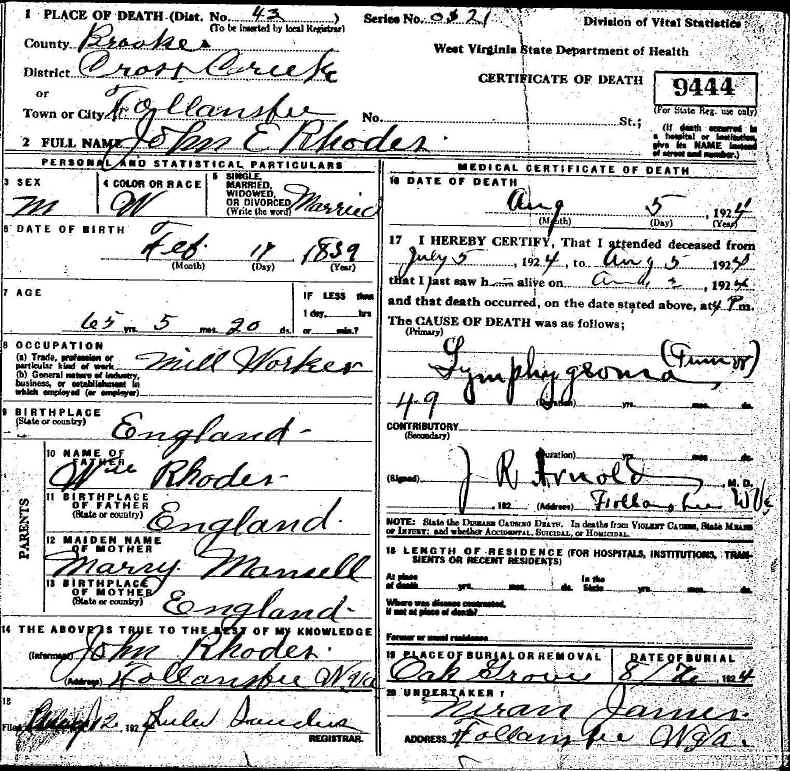 1 PLACE OF DEATH (Dist. No. 43 )
(To be inserted by local Registrar)
County Brooke
District Cross Creek
or
Town or City Follansbee
No. St.;
2 FULL NAME John E Rhodes.
Series No.
Division of Vital Statistics
West Virginia State Department of Health
CERTIFICATE OF DEATH
9444
(For State Reg. use only)
(If death occurred in
a hospital or institution,
give its NAME instead
of street and number.)
PERSONAL AND STATISTICAL PARTICULARS
3 SEX
M
4 COLOR OR RACE
W
5 SINGLE,
MARRIED,
WIDOWED,
OR DIVORCED
(Write the word) Married
6 DATE OF BIRTH
Feb 1839
(Month) (Day) (Year)
7 AGE
65 yrs. 5 mos. 20 ds.
IF LESS than
1 day, hrs
or min.?
8 OCCUPATION
(a) Trade, profession or
particular kind of work Mill Worker
(b) General nature of industry,
business, or establishment in
which employed (or employer)
9 BIRTHPLACE
(State or country)
England
PARENTS
10 NAME OF
FATHER
Rhodes
11 BIRTHPLACE
OF FATHER
(State or country)
England.
12 MAIDEN NAME
OF MOTHER
Marry Mansell
13 BIRTHPLACE
OF MOTHER
(State or country)
England
14 THE ABOVE IS TRUE TO THE BEST OF MY KNOWLEDGE
(Informant) John Rhodes.
(Address) Follansbee W Va
15
Filed 12 192 Sanders
REGISTRAR.
MEDICAL CERTIFICATE OF DEATH
16 DATE OF DEATH
Aug 5 , 1924
(Month) (Day) (Year)
17 I HEREBY CERTIFY, That I attended deceased from
July 5 , 1924, to Aug 5 1924
that I last saw h alive on 1924
and that death occurred, on the date stated above, at 4 P m.
The CAUSE OF DEATH was as follows;
(Primary)
(Tumor)
49
(Duration) yrs. mos. ds.
CONTRIBUTORY
(Secondary)
(Duration) yrs. mos. ds.
(Signed) J R Arnold M. D.
, 192 (Address) Follansbee W Va
NOTE: State the DISEASE CAUSING DEATH. In deaths from VIOLENT CAUSES, State MEANS
OF INJURY; and whether ACCIDENTAL, SUICIDAL, or HOMICIDAL.
18 LENGTH OF RESIDENCE (FOR HOSPITALS, INSTITUTIONS, TRAN-
SIENTS OR RECENT RESIDENTS)
At place
of death yrs. mos. ds. In the
State yrs. mos. ds.
Where was disease contracted,
if not at place of death?
Former or usual residence
19 PLACE OF BURIAL OR REMOVAL
Oak Grove
DATE OF BURIAL
1924
20 UNDERTAKER
James
ADDRESS Follansbee W Va.